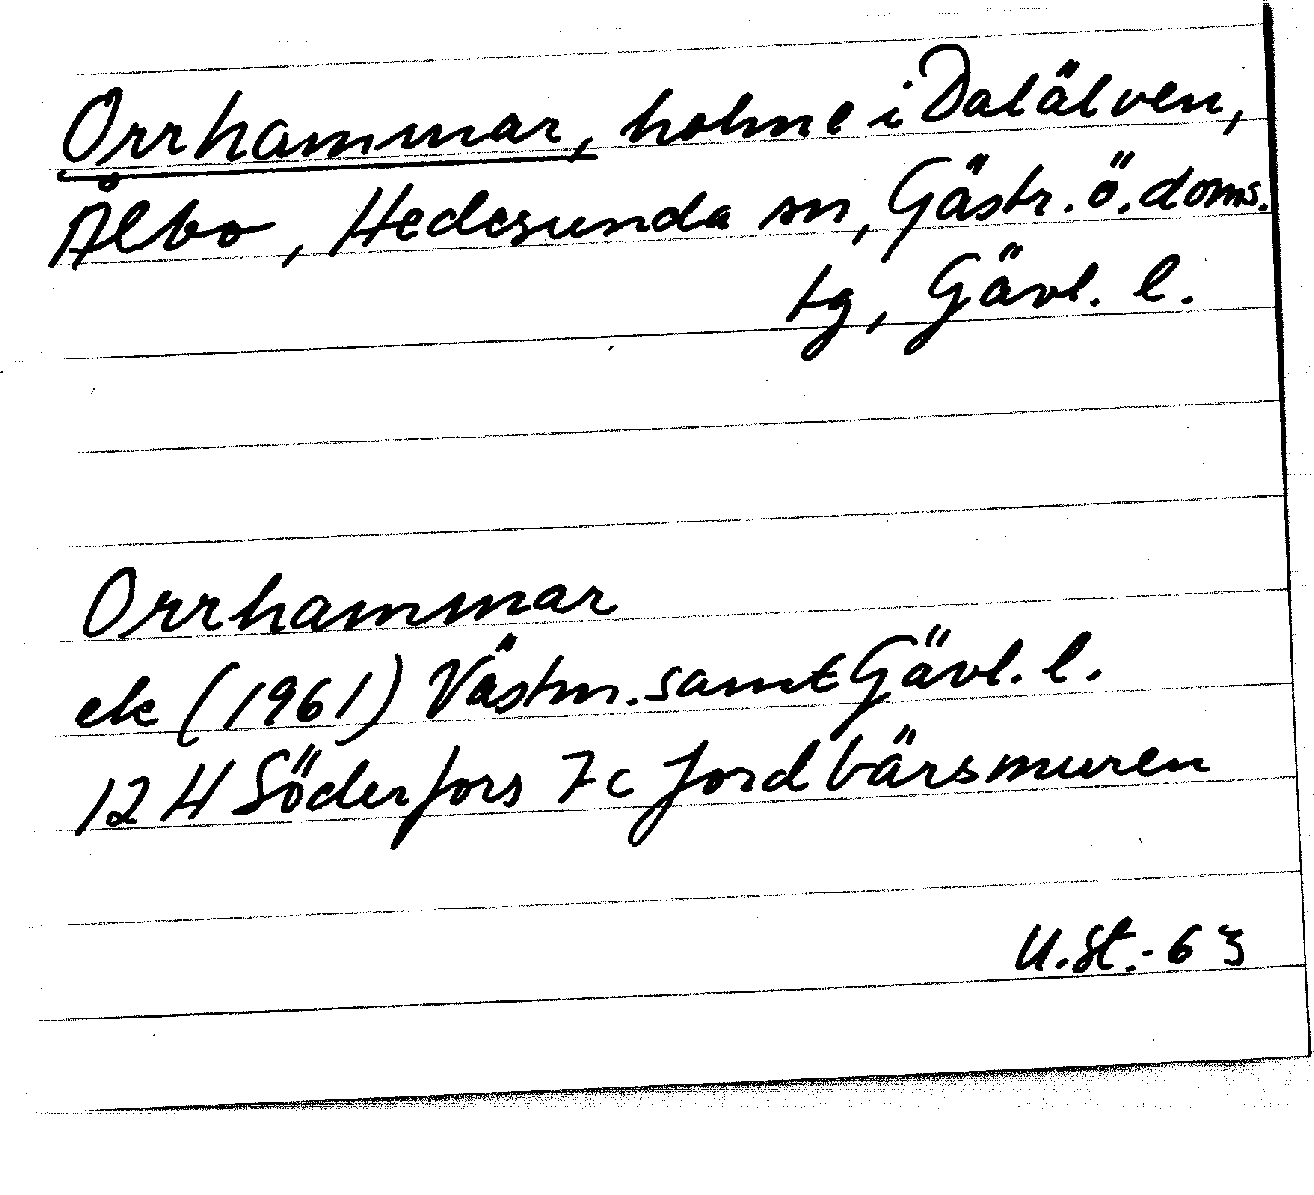 Orrhammar, holme i Dalälven,
Ålbo, Hedesunda sn, Gästr. ö. doms.
tg, Gävl. l.
Orrhammar
ek (1961) Västm. samt Gävl. l.
12 H Söderfors 7c Jordbärsmuren
U.St.-63